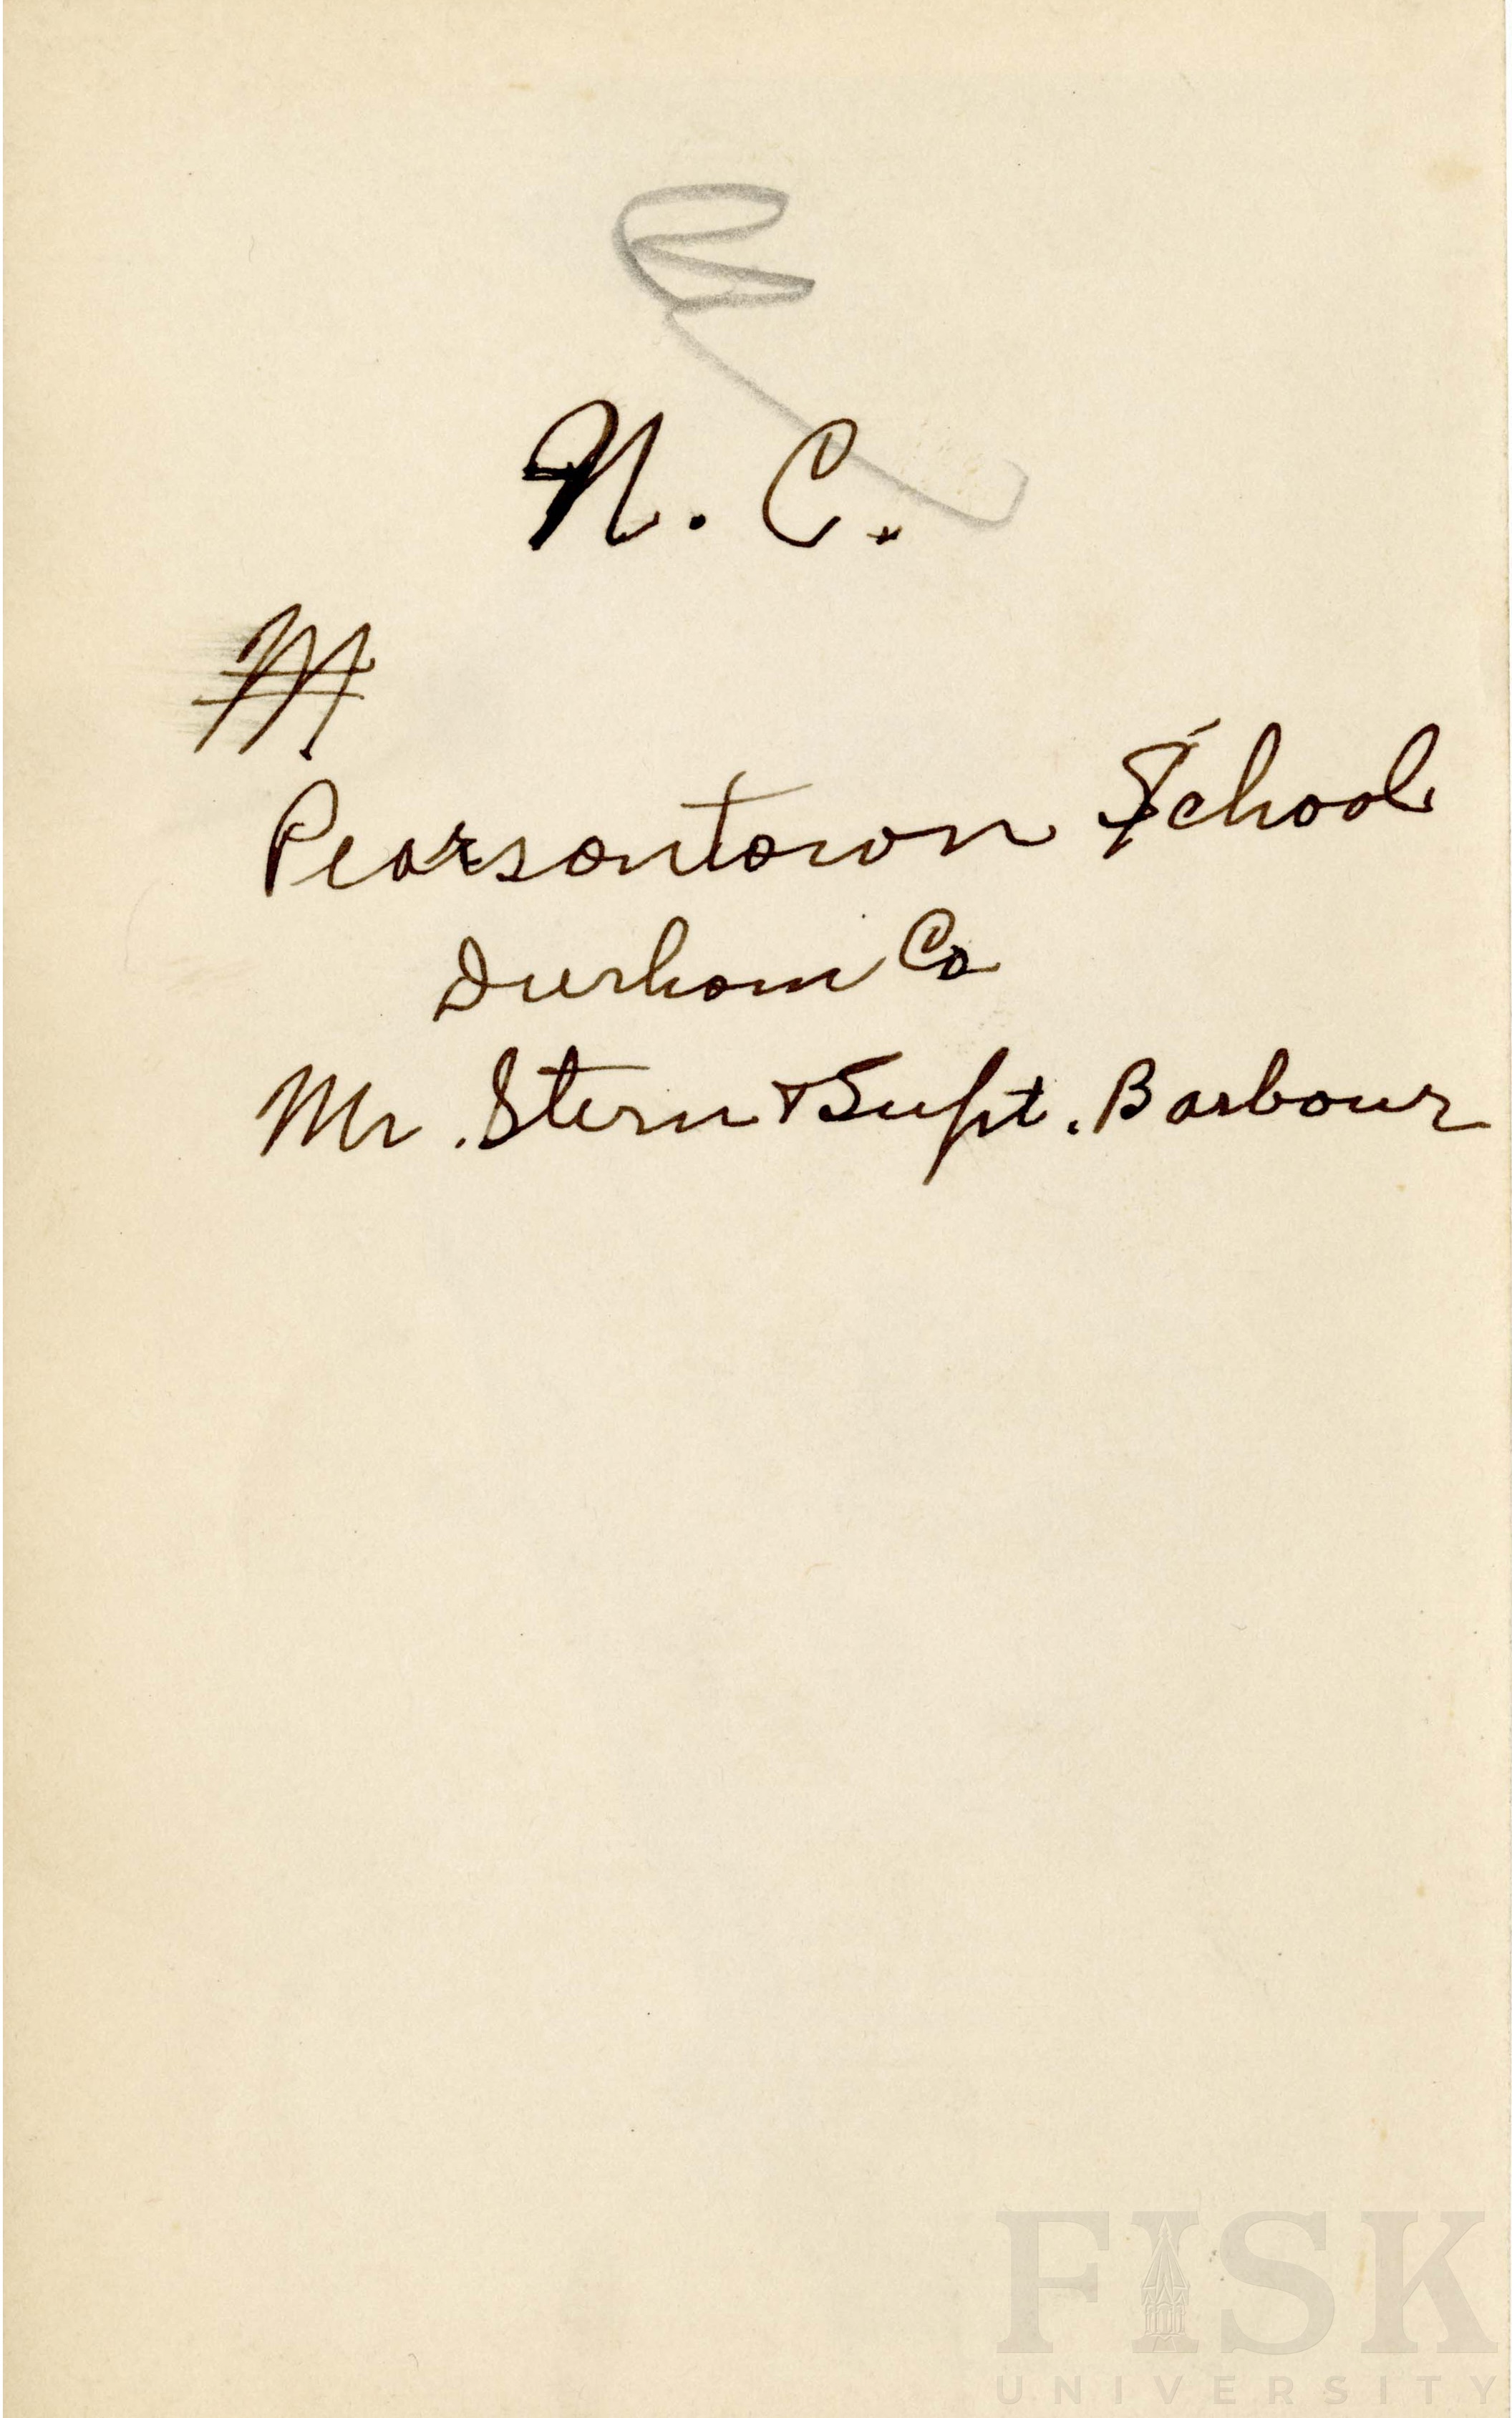 N. C.
M
Pearsontown School
Durham Co
Mr. Stern & Supt. Barbour
FISK
UNIVERSITY